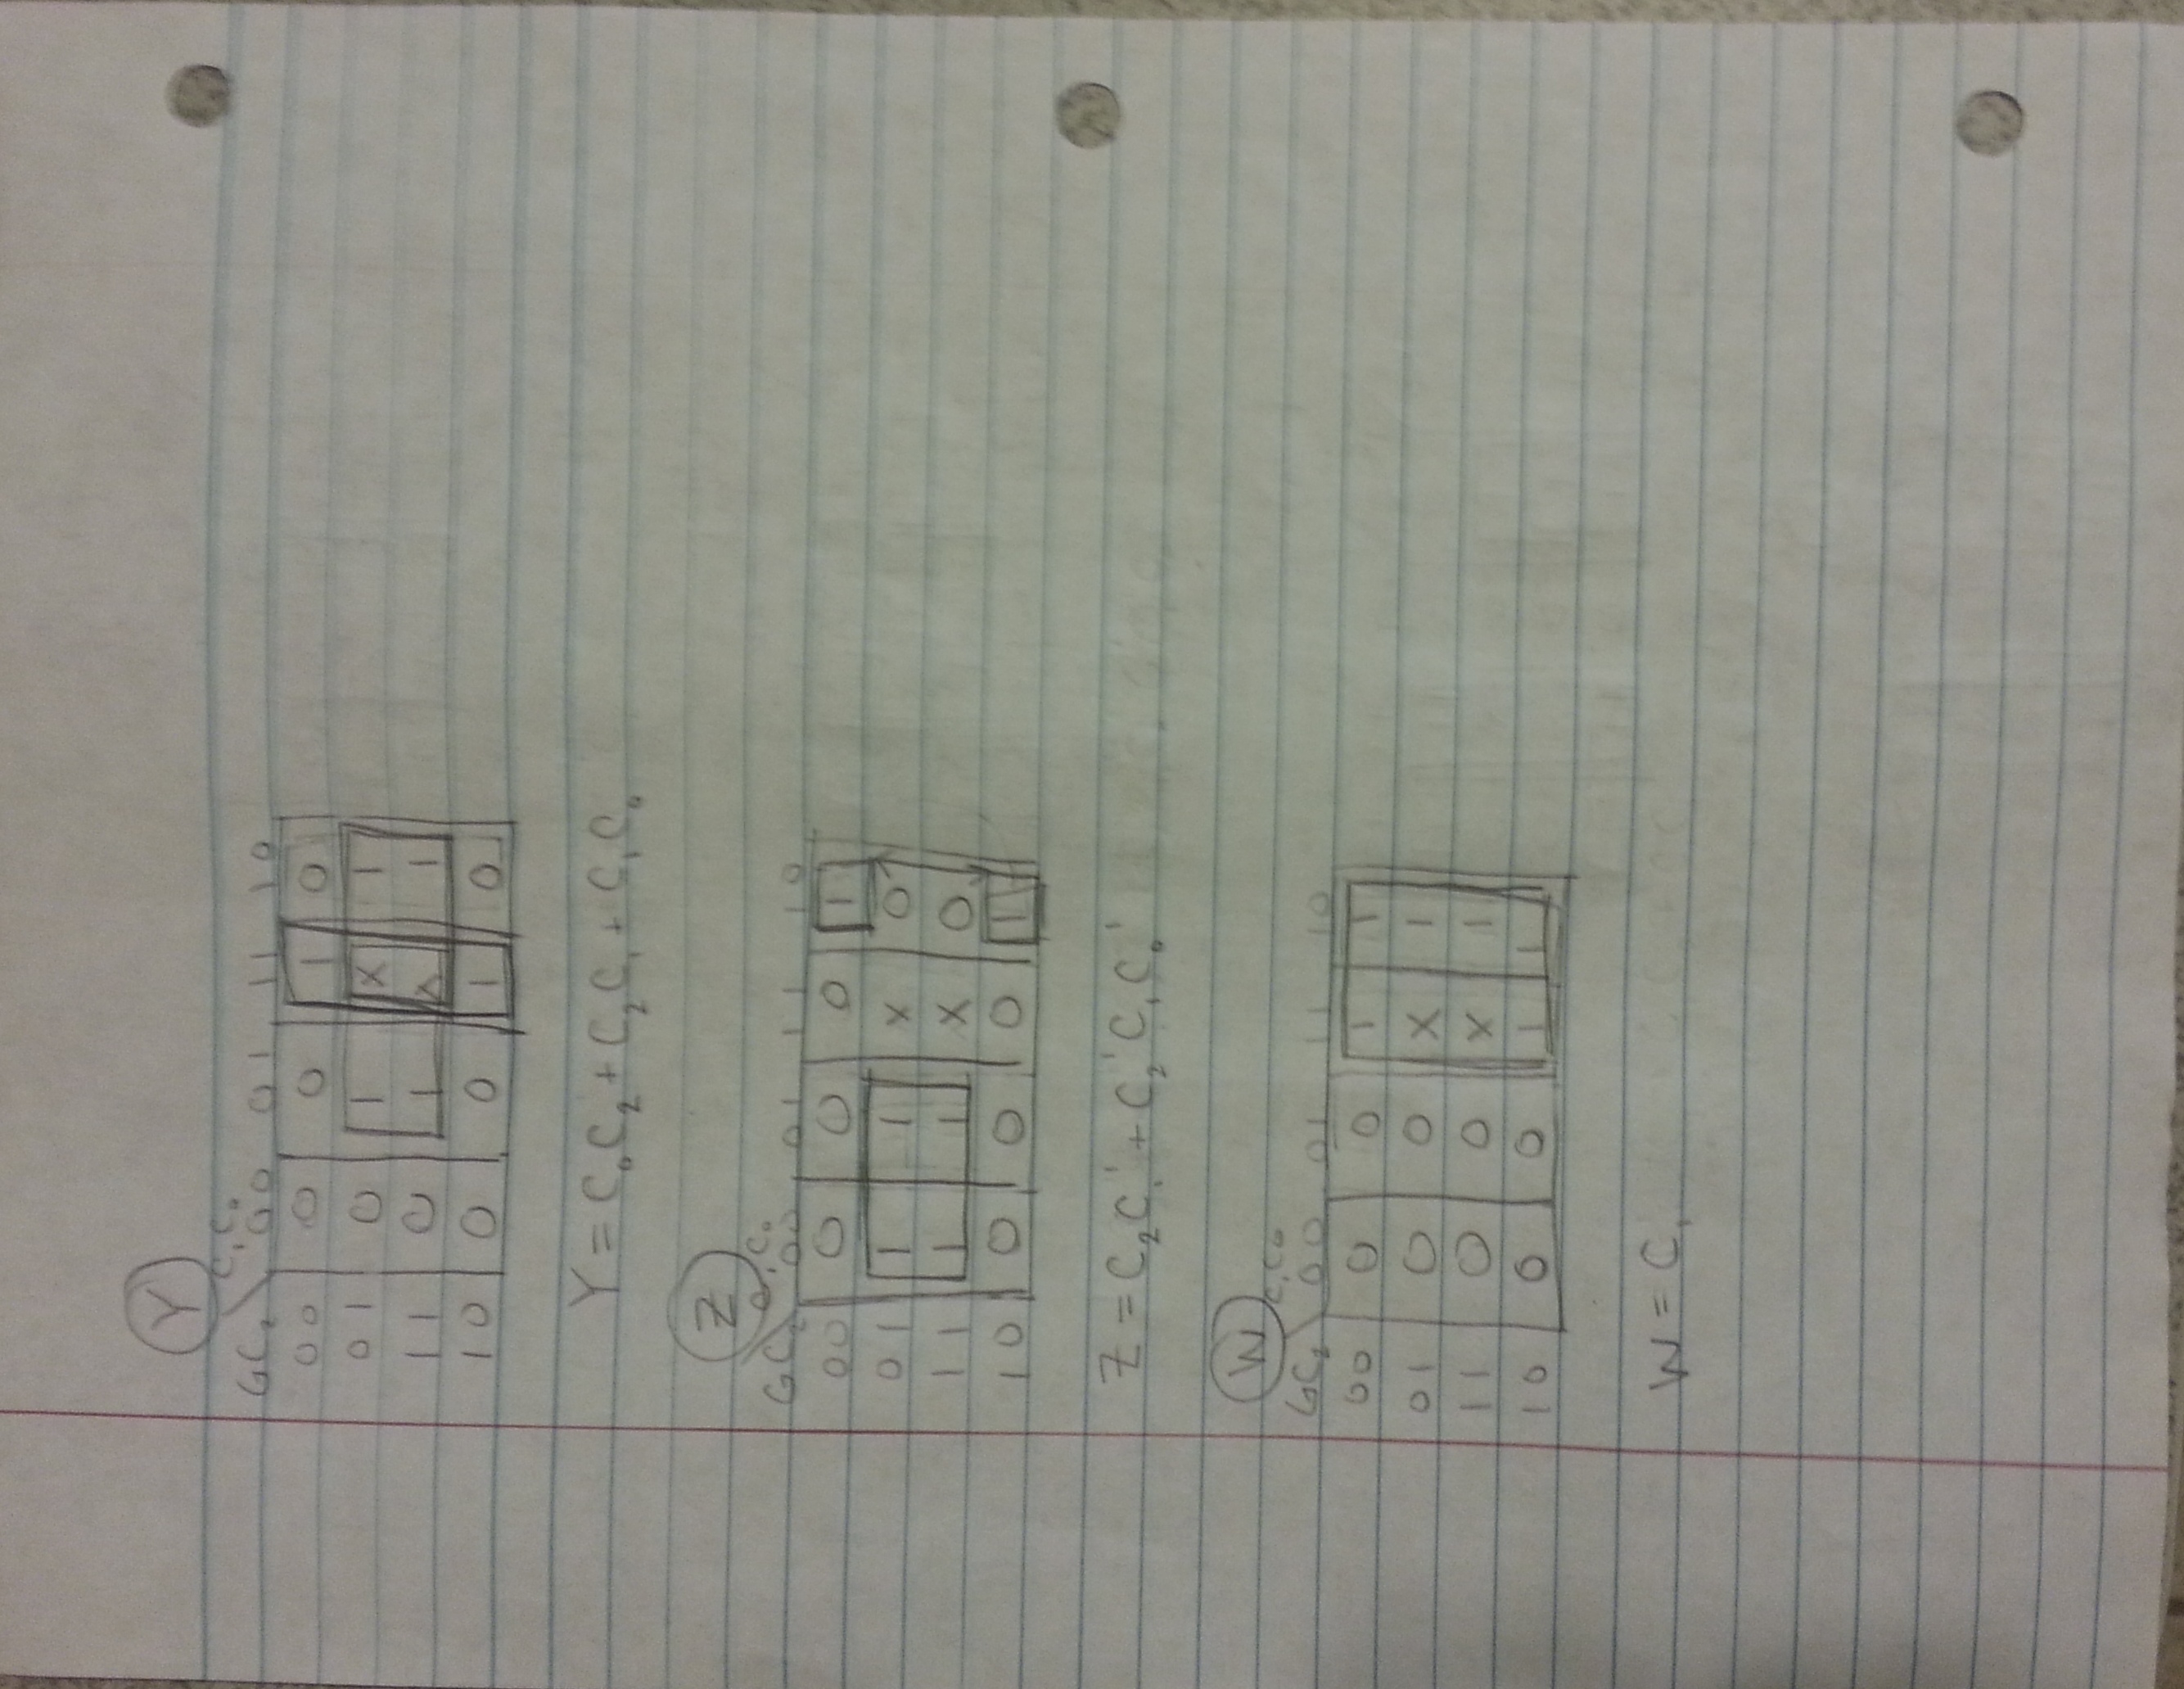 Y
GC₂ C₁C₀ 00 01 11 10
00 0 0 1 0
01 0 1 X 1
11 0 1 X 1
10 0 0 1 0
Y = C₀C₂ + C₂C₁ + C₁C₀
Z
GC₂ C₁C₀ 00 01 11 10
00 0 0 0 1
01 1 1 X 0
11 1 1 X 0
10 0 0 0 1
Z = C₂C₁' + C₂'C₁C₀'
W
GC₂ C₁C₀ 00 01 11 10
00 0 0 1 1
01 0 0 X 1
11 0 0 X 1
10 0 0 1 1
W = C₁